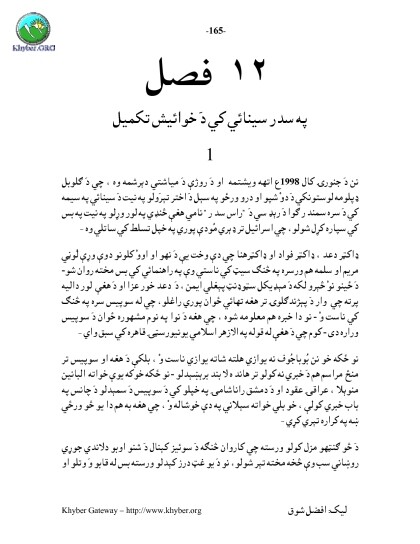 -165-
Khyber.ORG
۱۲ فصل
په سدر سينائي کي دَ خوائيش تکميل
1
نن دَ جنورۍ کال 1998ع اتهه ويشتمه او دَ روژې دَ مياشتي ديرشمه وه ، چي دَ ګلوبل
ډپلومه لوستونکي دَ دوُ شپو او درو ورځو په سېل دَ اختر تېرَولو په نيت دَ سينائي په سيمه
کي دَ سره سمندر رګوا دَ رېډ سي دَ "راس سدر "نامي هغې څنډې په لور ورلو په نيت په بس
کي سپاره کړل شولو ، چي اسرائيل تر ډېرې مُودې پوري په خپل تسلط کي ساتلې وه -
ډاکټر دعد ، ډاکټر فواد او ډاکټر هنا چي دې وخت يې دَ نهو او اووُ کلونو دوې وړې لوڼي
مريم او سلمه هم ورسره په څنګ سيټ کي ناستي وې په راهنمائي کي بس مخته روان شو-
دَ خيټو نوُ څېرو لکه دَ ميډيکل سټوډنټ پېغلي ايمن ، دَ دعد خور عزا او دَ هغې لور داليه
پرته چي وار دَ پېژند ګلوۍ تر هغه تهائي ځوان پوري راغلو ، چي له سوېيس سره په څنګ
کي ناست وُ - نو دا خبره هم معلومه شوه ، چي هغه دَ نوا په نوم مشهوره ځوان دَ سوېيس
وراره دی - کوم چي دَ هغې له قوله په الازهر اسلامي يونيورسټۍ قاهره کي سبق وايي -
نو ځکه خو نن بُوباجُوف نه يوازي هلته شاته يوازي ناست وُ ، بلکي دَ هغه او سوېيس تر
منځ مراسم هم دَ خبري نه کولو تر هاند ه لا بند برېښېدلو - نو ځکه خو که يوې خواته البانين
منوېلا ، عراقي عقود او دَ دمشق راناشامۍ په خپلو کي دَ سوېيس دَ سمېدلو دَ چانس په
باب خبري کولې ، خو بلي خواته سېلاني په دې خوشاله وُ ، چي هغه به هم دا يو څو ورځي
ښه په کراره تېري کړي -
دَ څو ګنټهو مزل کولو ورسته چي کاروان څنګه دَ سوئيز کېنال دَ شنو اوبو دلاندي جوړي
روښاني سب وې څخه مخته تېر شولو ، نو دَ يو غټ درز کېدلو ورسته بس له قابو وَ وتلو او
Khyber Gateway – http://www.khyber.org
ليک: افضل شوق